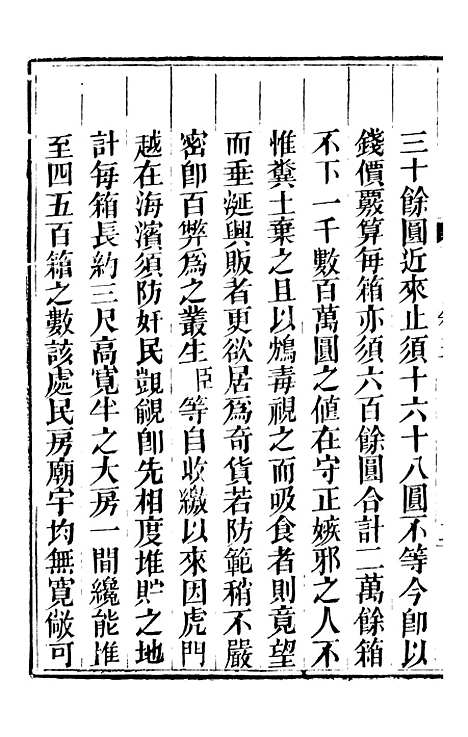 三十餘圓近來止須十六十八圓不等今卽以
錢價覈算每箱亦須六百餘圓合計二萬餘箱
不下一千數百萬圓之値在守正嫉邪之人不
惟糞土棄之且以鴆毒視之而吸食者則竟望
而垂涎興販者更欲居爲奇貨若防範稍不嚴
密卽百弊爲之叢生臣等自收繳以來因虎門
越在海濱須防奸民覬覦卽先相度堆貯之地
計每箱長約三尺高寬半之大房一間纔能堆
至四五百箱之數該處民房廟宇均無寬敞可